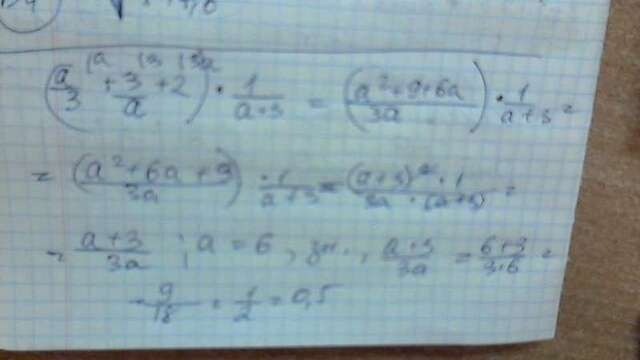 (a/3 + 3/a + 2) · 1/(a+3) = (a²+9+6a)/(3a) · 1/(a+3) =
= (a²+6a+9)/(3a) · 1/(a+3) = (a+3)²·1/(3a·(a+3)) =
= (a+3)/(3a) ; a = 6, (a+3)/(3a) = (6+3)/(3·6) =
= 9/18 = 1/2 = 0,5